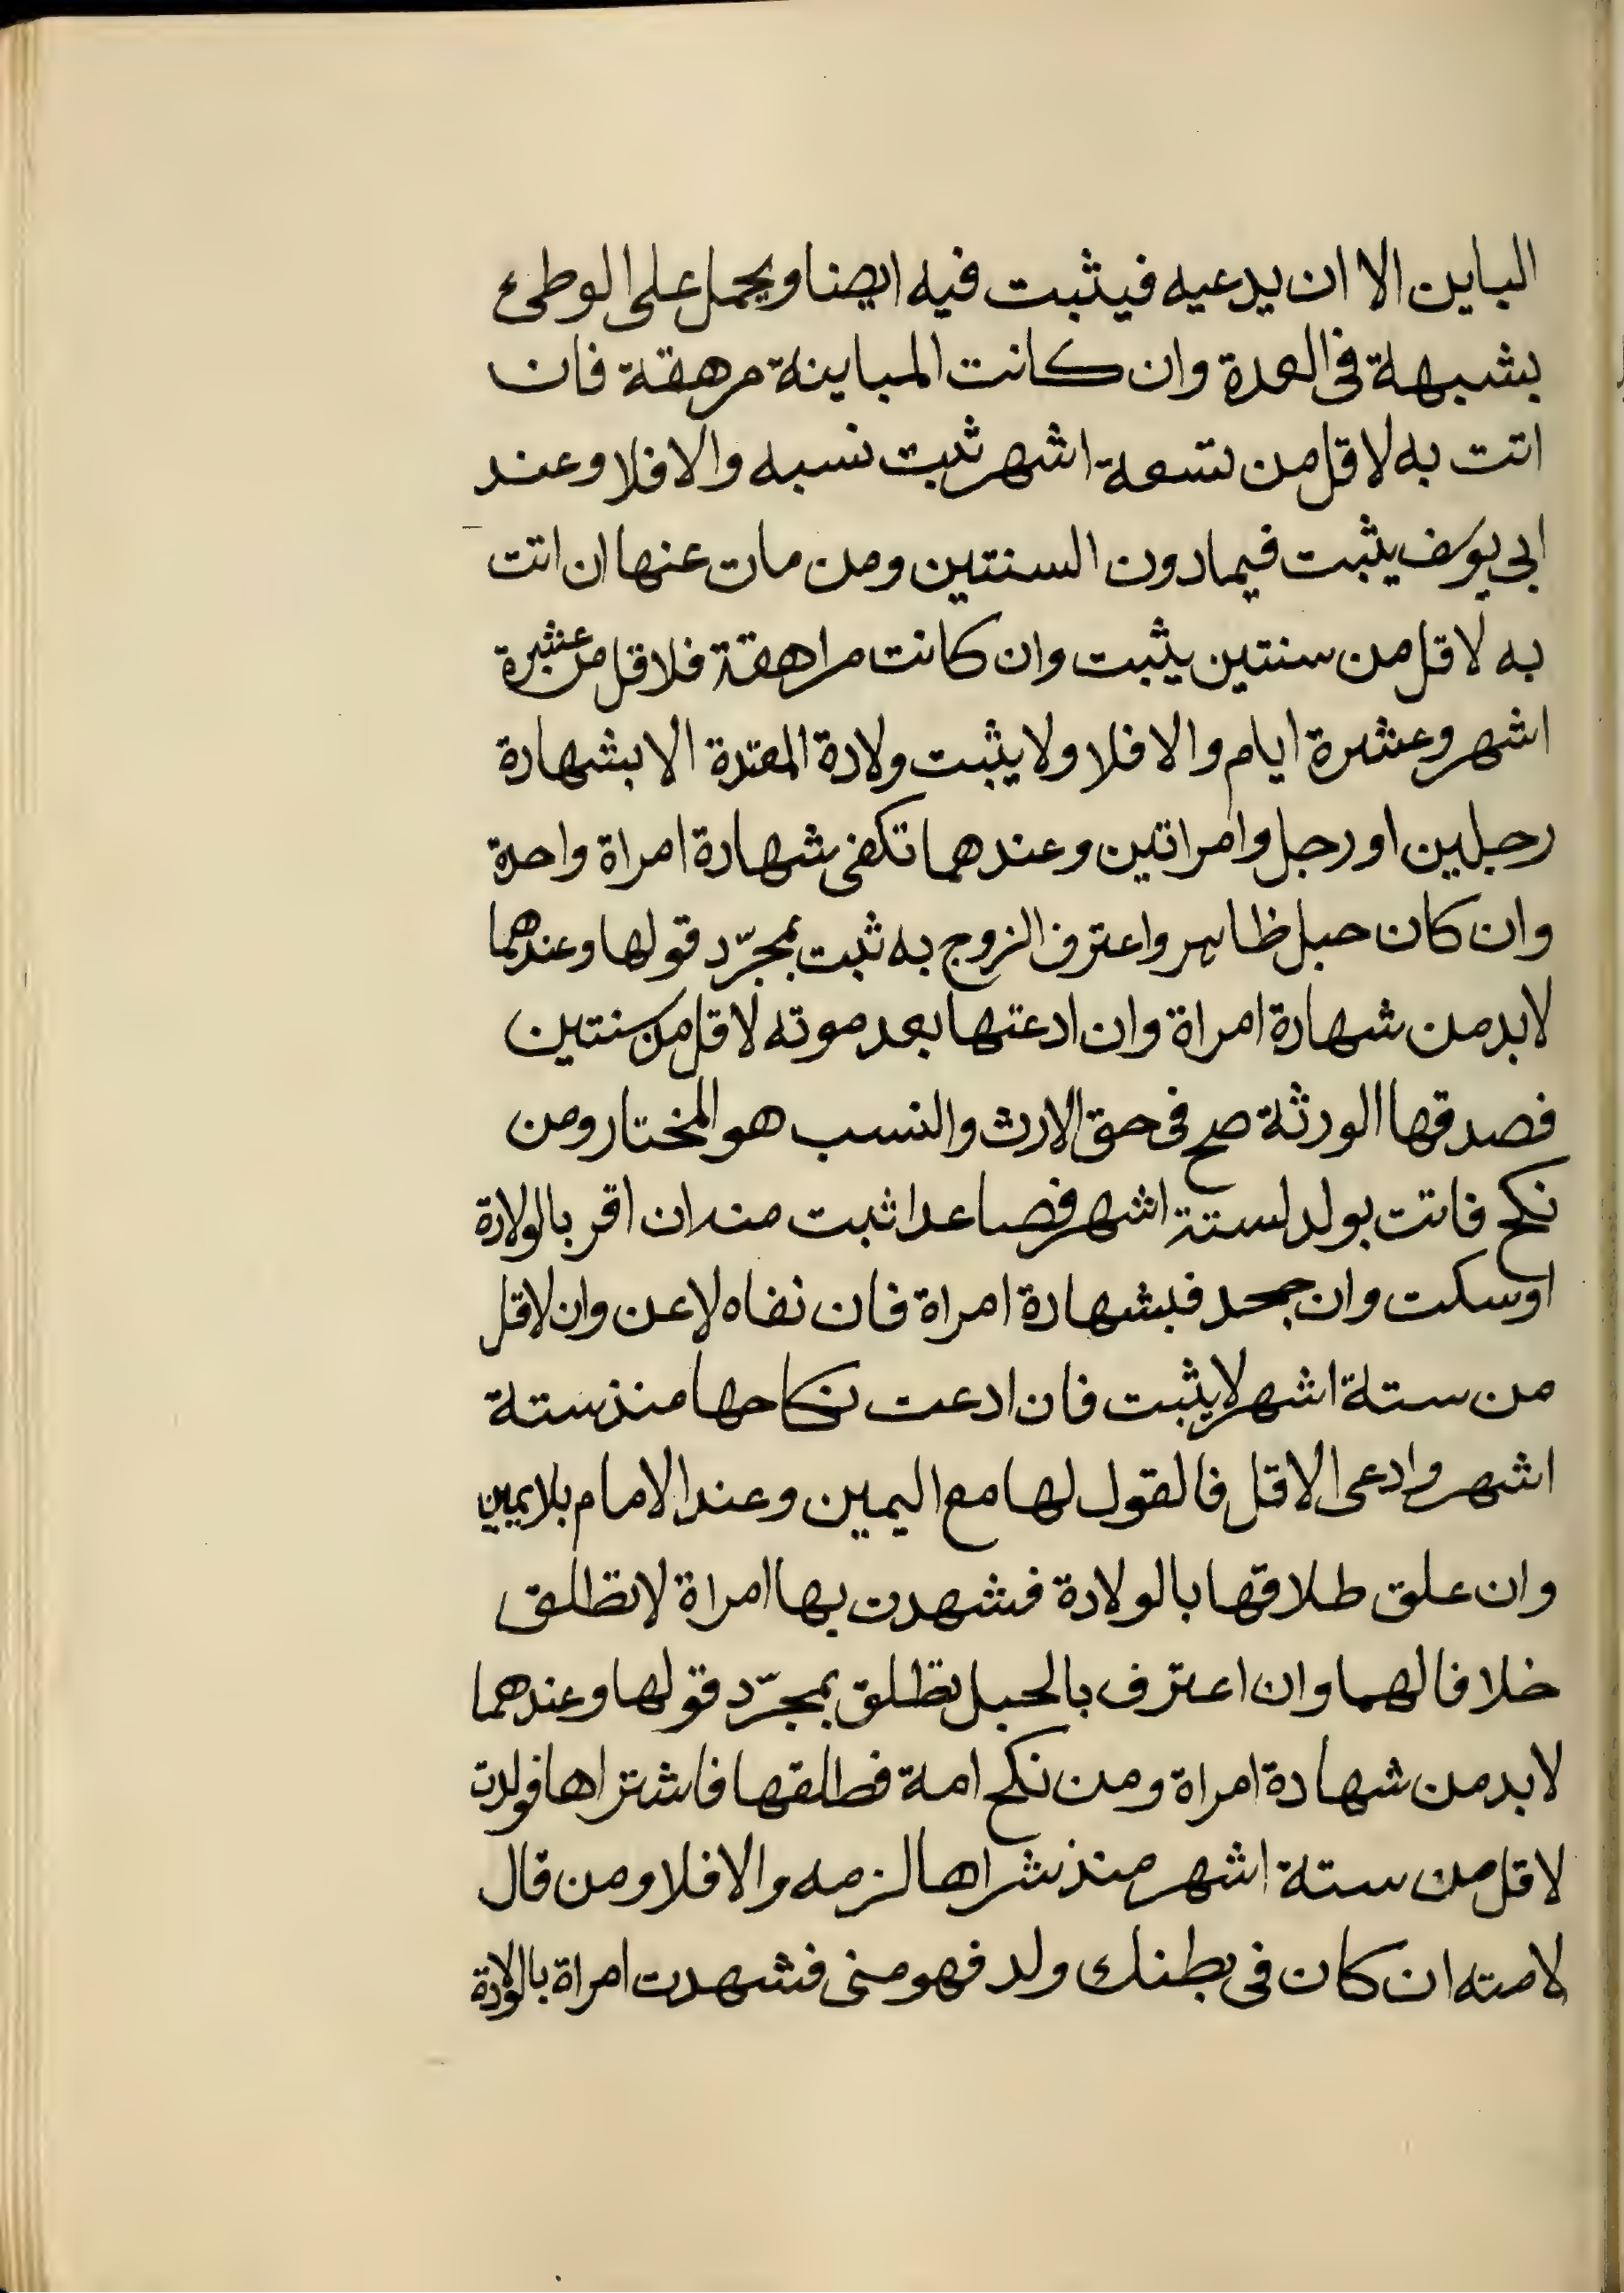 الباين الا ان يدعيه فيثبت فيه ايضا ويحمل على الوطئ
بشبهة فى العدة وان كانت المباينة مرهقة فان
اتت به لاقل من تسعة اشهر ثبت نسبه والا فلا وعند
ابي يوسف يثبت فيما دون السنتين ومن مات عنها ان اتت
به لاقل من سنتين يثبت وان كانت مراهقة فلاقل من عشرة
اشهر وعشرة ايام والا فلا ولا يثبت ولادة المعتدة الا بشهادة
رجلين او رجل وامراتين وعندهما تكفى شهادة امراة واحدة
وان كان حبل ظاهر واعترف الزوج به ثبت بمجرّد قولها وعندهما
لابد من شهادة امراة وان ادعتها بعد موته لاقل من سنتين
فصدقها الورثة صح فى حق الارث والنسب هو المختار ومن
نكح فاتت بولد لستة اشهر فصاعدا ثبت منه ان اقر بالولادة
او سكت وان جحد فبشهادة امراة فان نفاه لاعن وان لاقل
من ستة اشهر لا يثبت فان ادعت نكاحها منذ ستة
اشهر وادعى الاقل فالقول لها مع اليمين وعند الامام بلا يمين
وان علق طلاقها بالولادة فشهدت بها امراة لا تطلق
خلافا لهما وان اعترف بالحبل تطلق بمجرّد قولها وعندهما
لابد من شهادة امراة ومن نكح امة فطلقها فاشتراها فولدت
لاقل من ستة اشهر منذ شراها لزمه والا فلا ومن قال
لامته ان كان فى بطنك ولد فهو منى فشهدت امراة بالولادة